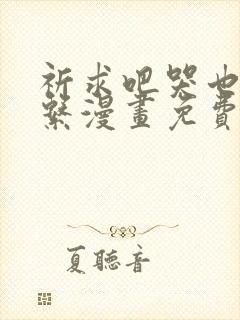 祈求吧哭也
繫漫畫免費
夏聽音